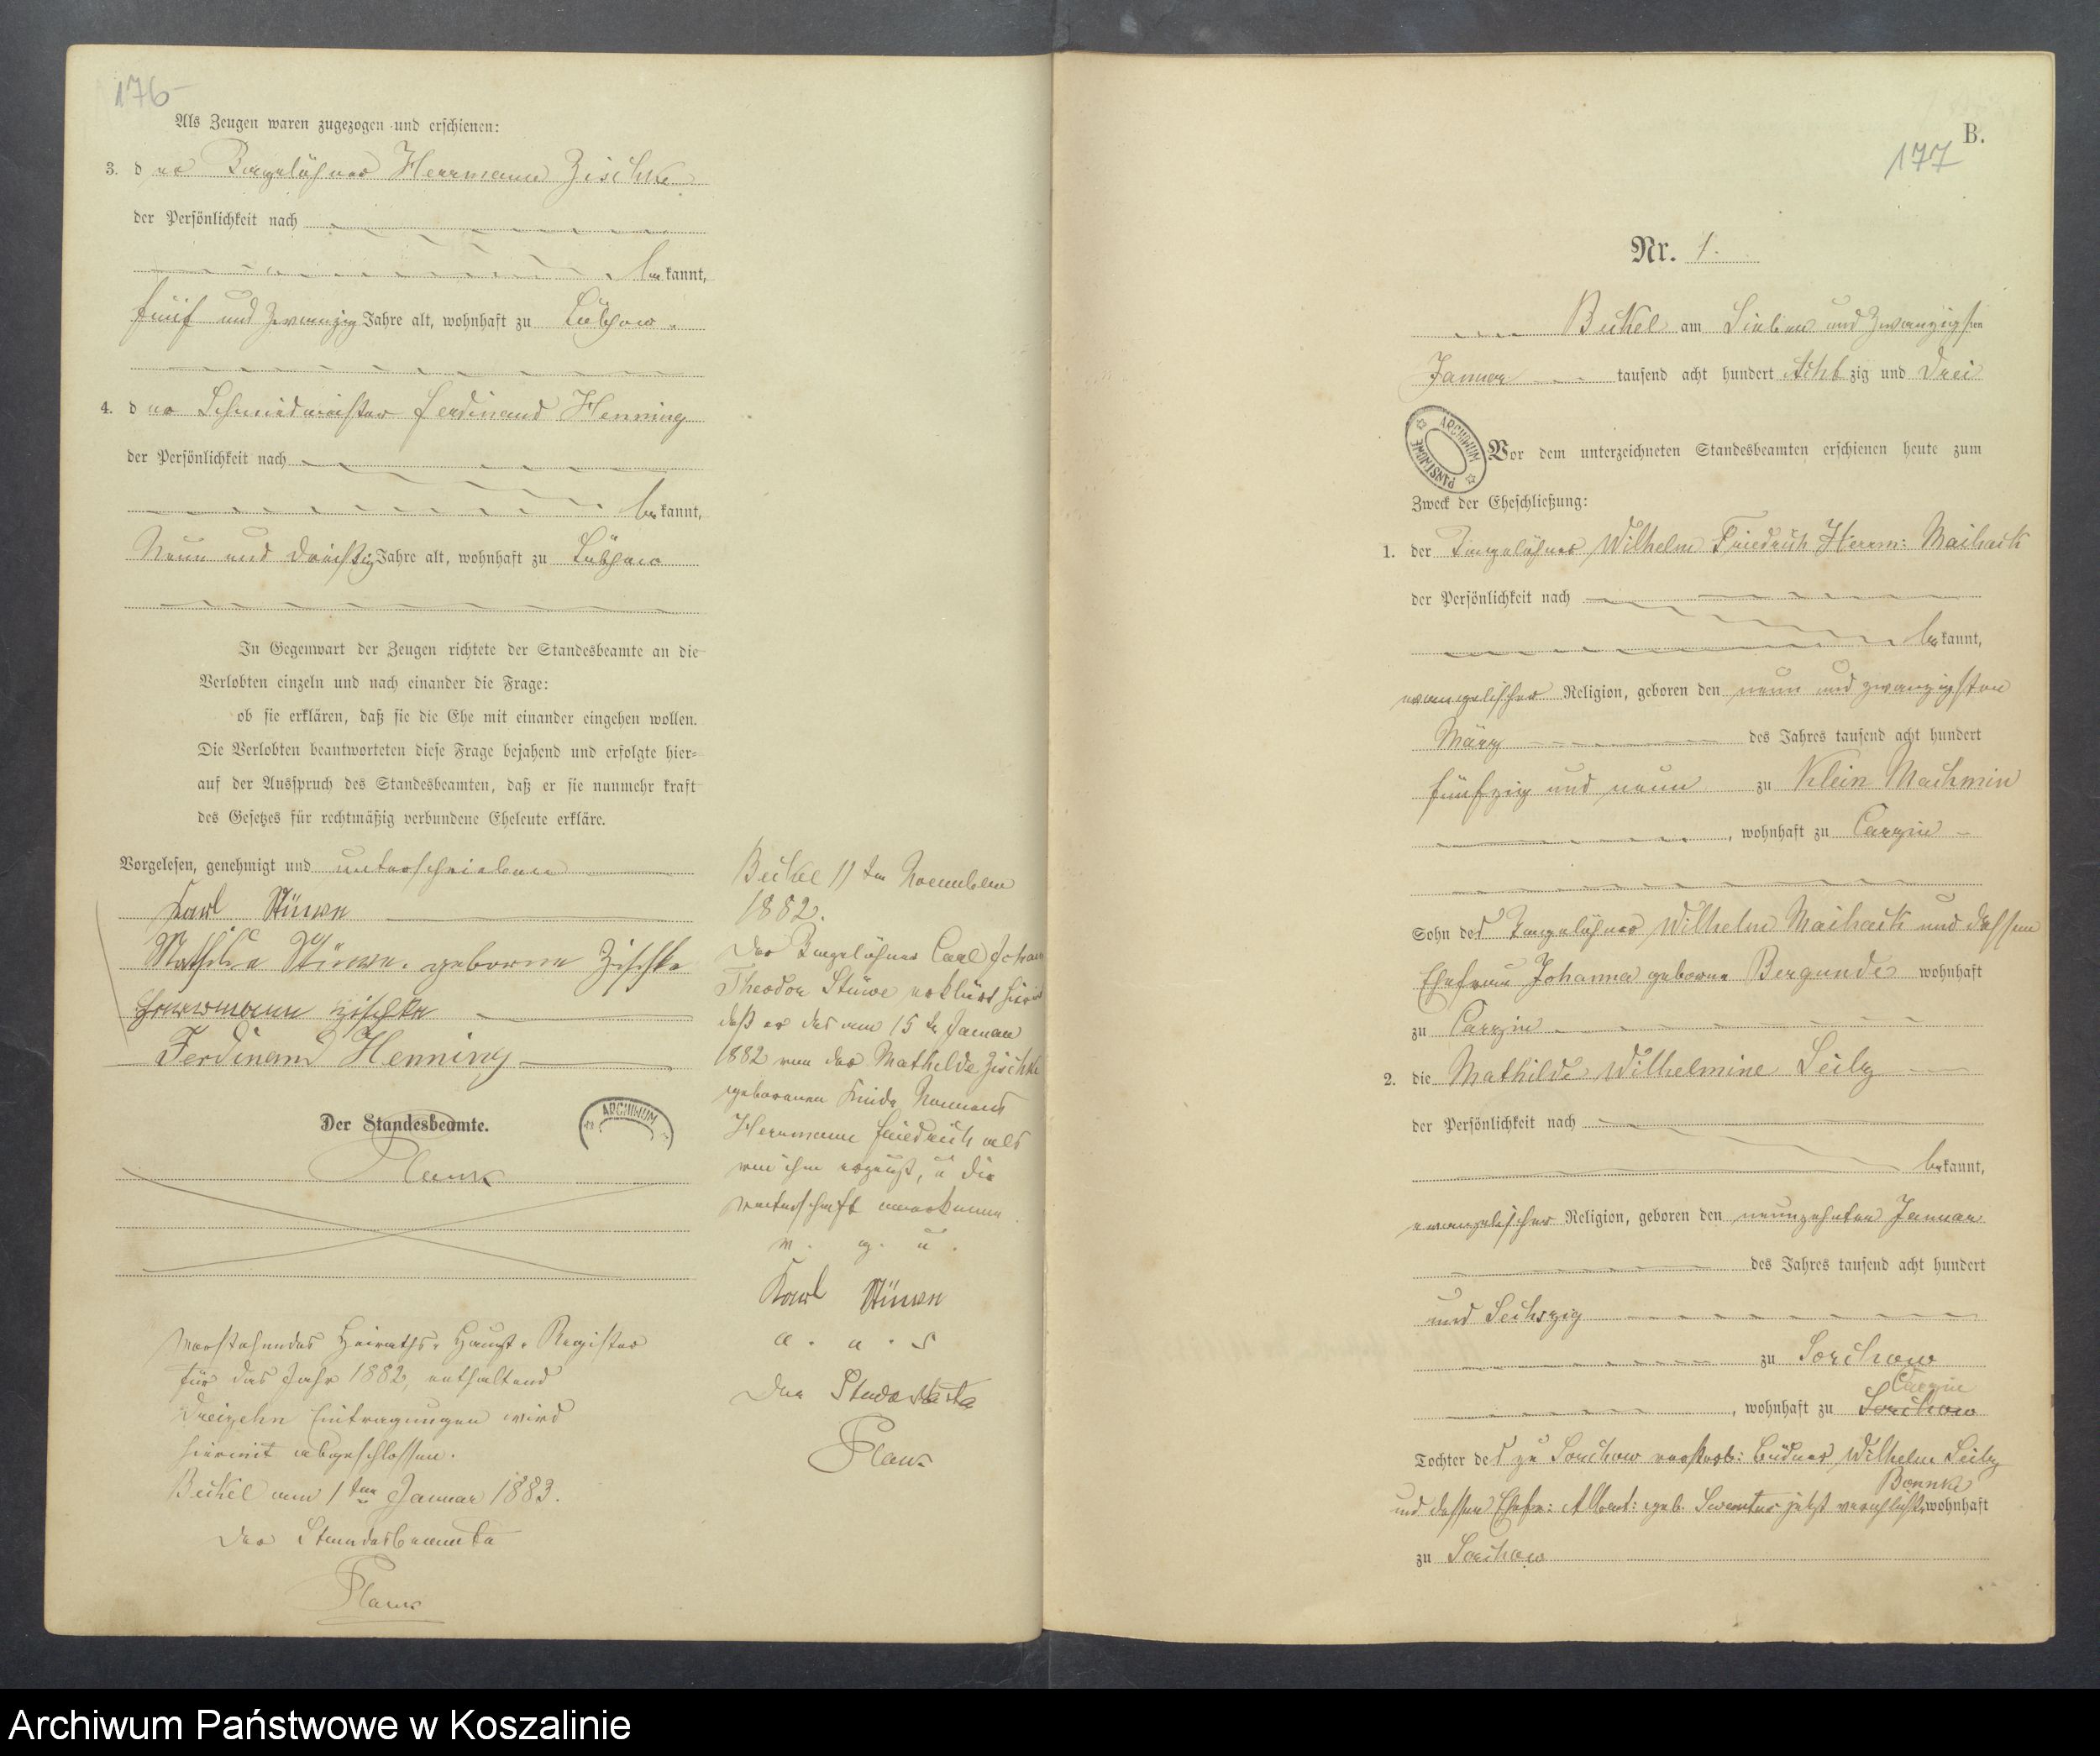 176
Als Zeugen waren zugezogen und erschienen:
3. der Tagelöhner Herrmann Zischke
der Persönlichkeit nach
bekannt,
fünf und zwanzig Jahre alt, wohnhaft zu Lübzow.
4. der Schmiedmeister Ferdinand Henning
der Persönlichkeit nach
bekannt,
Neun und dreißig Jahre alt, wohnhaft zu Lübzow
In Gegenwart der Zeugen richtete der Standesbeamte an die
Verlobten einzeln und nach einander die Frage:
ob sie erklären, daß sie die Ehe mit einander eingehen wollen.
Die Verlobten beantworteten diese Frage bejahend und erfolgte hier-
auf der Ausspruch des Standesbeamten, daß er sie nunmehr kraft
des Gesetzes für rechtmäßig verbundene Eheleute erkläre.
Vorgelesen, genehmigt und unterschrieben
Karl Stüwe
Mathilde Stüwe. geborene Zischke
Herrmann Zischke
Ferdinand Henning
Der Standesbeamte.
ARCHIWUM
Vorstehendes Heiraths-Haupt-Register
für das Jahr 1882, enthaltend
Dreizehn Eintragungen wird
hiermit abgeschlossen.
Beckel am 1ten Januar 1883.
Der Standesbeamte
Beckel 11ten November
1882.
Der Tagelöhner Carl Johann
Theodor Stüwe erklärt hiermit
daß er das am 15 Januar
1882 von der Mathilde Zischke
geborenen Kinde Namens
Herrmann Friedrich als
von ihm erzeugt, u die
Vaterschaft anerkenne
v. g. u.
Karl Stüwe
a. u. s
Der Standesbeamte
B.
177
Nr. 1.
Beckel am Sieben und zwanzigsten
Januar tausend acht hundert Achtzig und Drei
ARCHIWUM PAŃSTWOWE
Vor dem unterzeichneten Standesbeamten erschienen heute zum
Zweck der Eheschließung:
1. der Tagelöhner Wilhelm Friedrich Herrm: Maihack
der Persönlichkeit nach
bekannt,
evangelischer Religion, geboren den neun und zwanzigsten
März des Jahres tausend acht hundert
fünfzig und neun zu Klein Machmin
, wohnhaft zu Carzin
Sohn des Tagelöhner Wilhelm Maihack und dessen
Ehefrau Johanna geborne Bergunde wohnhaft
zu Carzin
2. die Mathilde Wilhelmine Seils
der Persönlichkeit nach
bekannt,
evangelischer Religion, geboren den neunzehnten Januar
des Jahres tausend acht hundert
und Sechszig
zu Sorchow
Carzin
, wohnhaft zu Sorchow
Tochter des zu Sorchow verstorb: Büdner Wilhelm Seils
Bonnke
und dessen Ehefr: Albert: geb. jetzt verehlicht wohnhaft
zu Sorchow
Archiwum Państwowe w Koszalinie